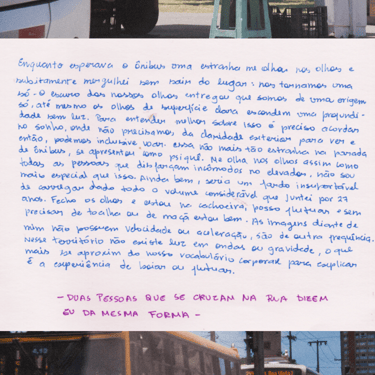 Enquanto esperava o ônibus uma estranha me olhou nos olhos e
subitamente mergulhei sem sair do lugar: nos tornamos uma
só. O escuro dos nossos olhos entregou que somos de uma origem
só, até mesmo os olhos de superfície clara escondem uma profundi-
dade sem luz. Para entender melhor sobre isso é preciso acordar
no sonho, onde não precisamos da claridade exterior para ver e
então, podemos inclusive voar. Essa não mais tão estranha na parada
de ônibus, se apresentou como psiquê. Me olha nos olhos assim como
todas as pessoas que disfarçam incômodos no elevador, não sou
mais especial que isso. Ainda bem, seria um fardo insuportável
de carregar dado todo o volume considerável que juntei por 27
anos. Fecho os olhos e estou na cachoeira, posso flutuar e sem
precisar de toalha ou de maçã estou bem. As imagens diante de
mim não possuem velocidade ou aceleração, são de outra frequência.
Nesse território não existe luz em ondas ou gravidade, o que
mais se aproxima do nosso vocabulário corporal para explicar
é a experiência de boiar ou flutuar.
- DUAS PESSOAS QUE SE CRUZAM NA RUA DIZEM
EU DA MESMA FORMA -